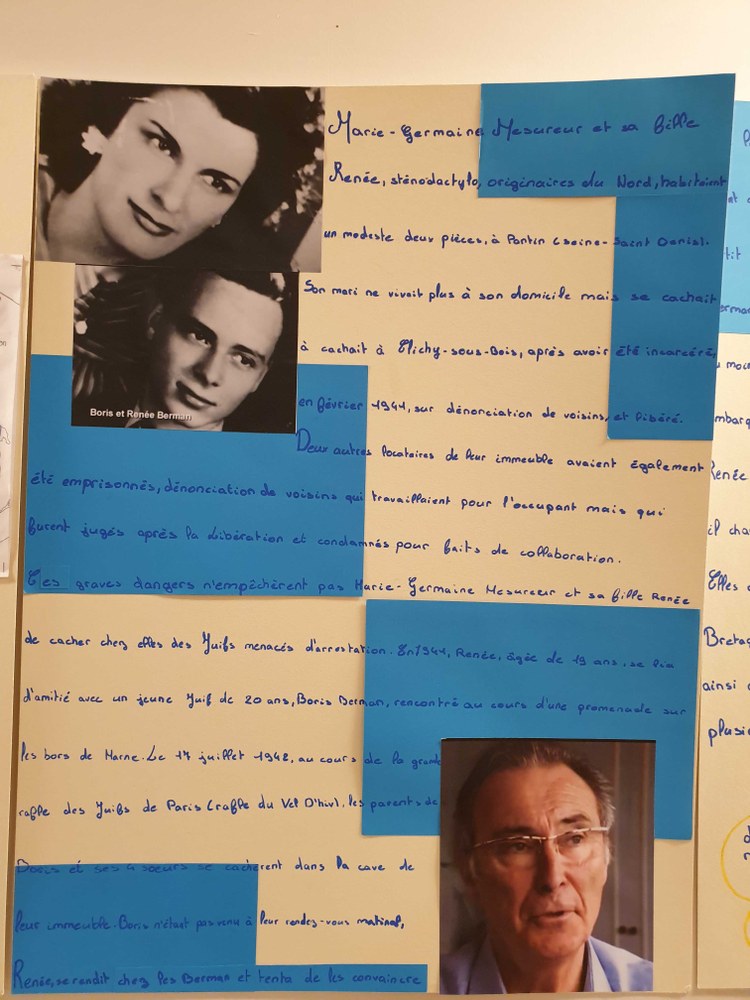 Marie-Germaine Mesureur et sa fille
Renée, sténodactylo, originaires du Nord, habitaient
un modeste deux pièces, à Pantin (Seine-Saint Denis).
Son mari ne vivait plus à son domicile mais se cachait
à cachait à Clichy-sous-Bois, après avoir été incarcéré,
en février 1941, sur dénonciation de voisins, et libéré.
Deux autres locataires de leur immeuble avaient également
été emprisonnés, dénonciation de voisins qui travaillaient pour l'occupant mais qui
furent jugés après la Libération et condamnés pour faits de collaboration.
Ces graves dangers n'empêchèrent pas Marie-Germaine Mesureur et sa fille Renée
de cacher chez elles des Juifs menacés d'arrestation. En 1941, Renée, âgée de 19 ans, se lia
d'amitié avec un jeune Juif de 20 ans, Boris Berman, rencontré au cours d'une promenade sur
les bors de Marne. Le 17 juillet 1942, au cours de la grande
raffle des Juifs de Paris (raffle du Vel D'hiv), les parents de
Boris et ses 4 soeurs se cachèrent dans la cave de
leur immeuble. Boris n'étant pas venu à leur rendez-vous matinal,
Renée, se rendit chez les Berman et tenta de les convaincre
Boris et Renée Berman
Renée
il cha
Elles
Bretag
ainsi
plusie